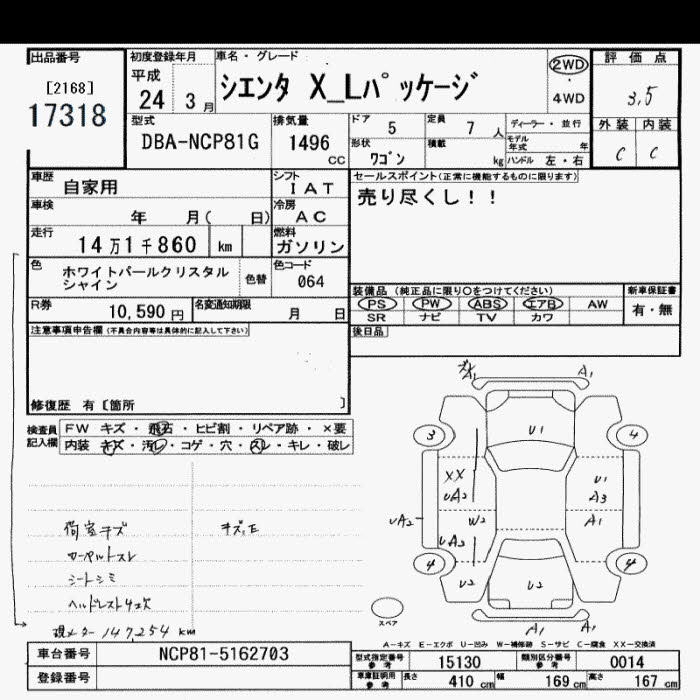 出品番号
[2168]
17318
初度登録年月
平成
24 3 月
車名・グレード
シエンタ X_Lパッケージ
2WD
・
4WD
評価点
3,5
外装 内装
C C
型式
DBA-NCP81G
排気量
1496
CC
ドア 5
定員 7 人
形状 ワゴン
積載 kg
ディーラー・並行
モデル年式 年
ハンドル 左・右
車歴 自家用
シフト
IAT
車検 年 月( 日)
冷房
AC
走行 14万1千860 km
燃料
ガソリン
色 ホワイトパールクリスタルシャイン
色替
色コード
064
R券 10,590 円
名変通知期限 月 日
セールスポイント(正常に機能するものに限ります)
売り尽くし!!
装備品 (純正品に限り○をつけてください)
PS PW ABS エアB AW
SR ナビ TV カワ
新車保証書
有・無
後日品
注意事項申告欄 (不具合内容等は具体的に記入して下さい)
修復歴 有 [箇所 ]
検査員記入欄
FW キズ・飛石・ヒビ割・リペア跡・×要
内装 キズ・汚レ・コゲ・穴・スレ・キレ・破レ
荷室キズ
カーペルトスレ
シートシミ
ヘルドレスト4欠
現メーター 147,254 km
A1 A1
3 U1 4
XX
UA2
U1
A3
UA2 W2 A1
UA2
4 4
U2 U2
A1 A1
スペア
A-キズ E-エクボ U-凹み W-補修跡 S-サビ C-腐食 XX-交換済
車台番号 NCP81-5162703
登録番号
型式指定番号 参考 15130
類別区分番号 参考 0014
車庫証明用 参考 長さ 410 cm 幅 169 cm 高さ 167 cm